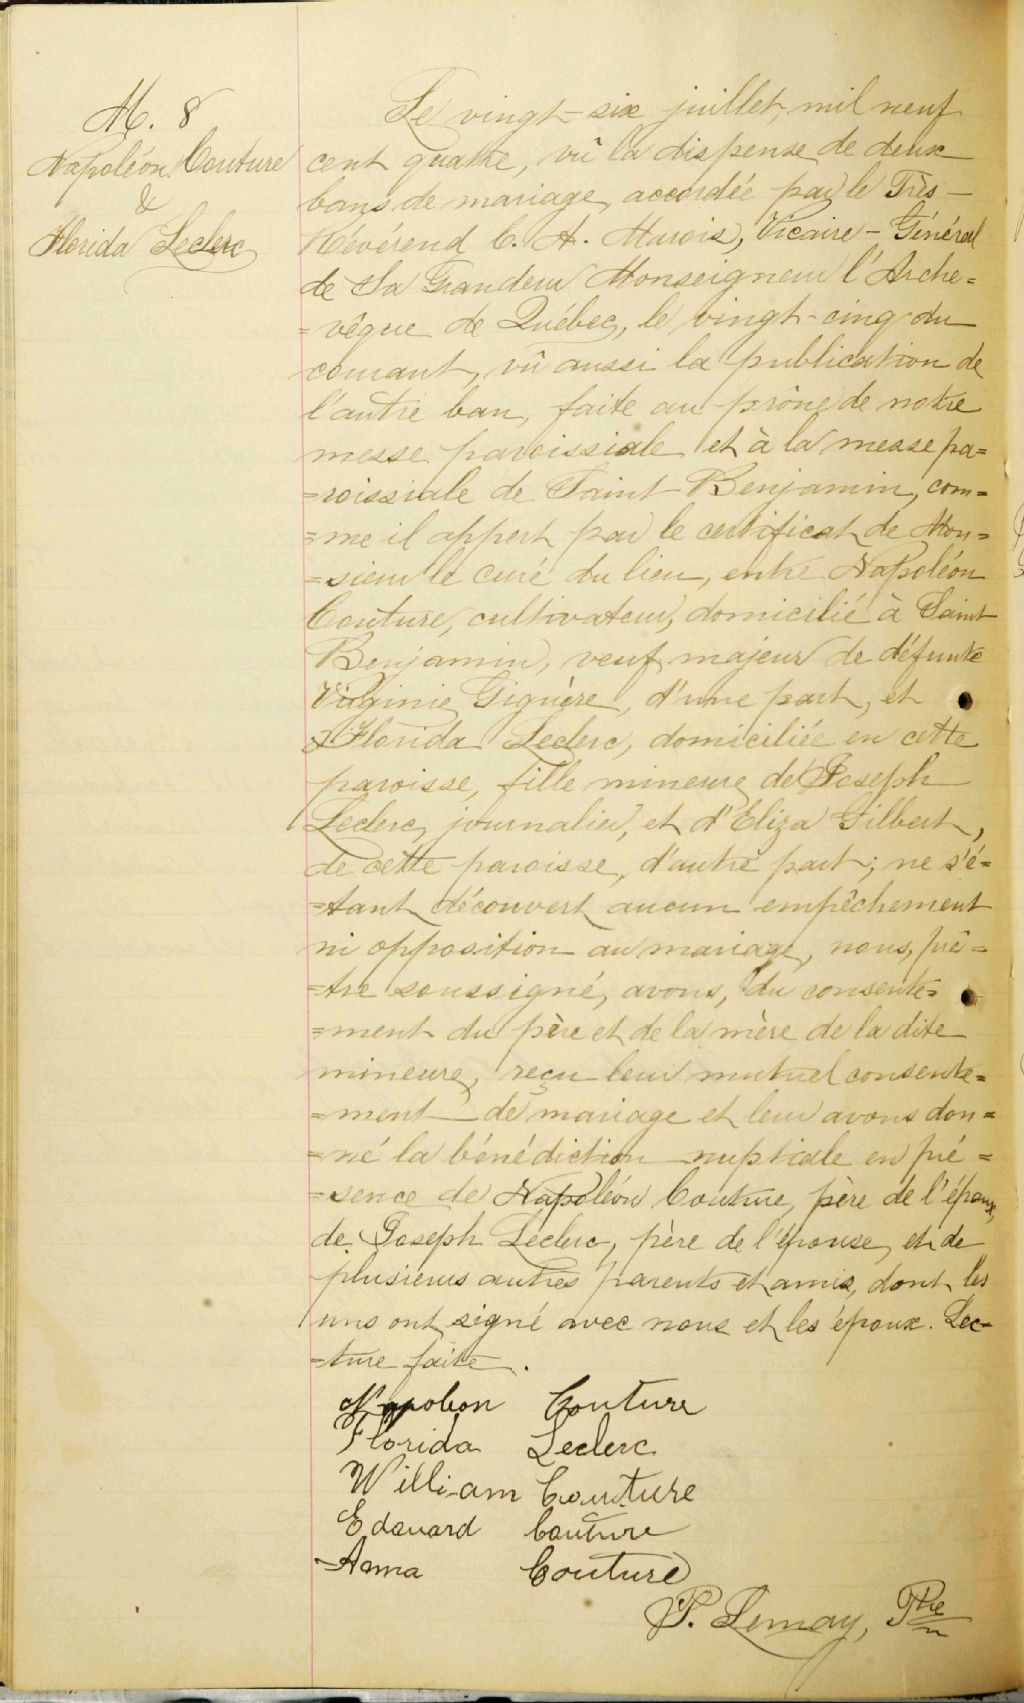 M. 8
Napoléon Couture
&
Florida Leclerc
Le vingt-six juillet, mil neuf
cent quatre, vû la dispense de deux
bans de mariage, accordée par le Très-
Révérend C. A. Marois, Vicaire-Général
de Sa Grandeur Monseigneur l'Arche=
=vêque de Québec, le vingt-cinq du
courant, vû aussi la publication de
l'autre ban, faite au prône de notre
messe paroissiale et à la messe pa=
=roissiale de Saint-Benjamin, com=
=me il appert par le certificat de Mon=
=sieur le curé du lieu, entre Napoléon
Couture, cultivateur, domicilié à Saint
Benjamin, veuf majeur de défunte
Virginie Giguère, d'une part, et
Florida Leclerc, domiciliée en cette
paroisse, fille mineure de Joseph
Leclerc, journalier, et d'Eliza Gilbert,
de cette paroisse, d'autre part; ne s'é=
=tant découvert aucun empêchement
ni opposition au mariage, nous, prê=
=tre soussigné, avons, du consente=
=ment du père et de la mère de la dite
mineure, reçu leur mutuel consente=
=ment de mariage et leur avons don=
=né la bénédiction nuptiale en pré=
=sence de Napoléon Couture, père de l'époux,
de Joseph Leclerc, père de l'épouse, et de
plusieurs autres parents et amis, dont les
uns ont signé avec nous et les époux. Lec=
=ture faite.
Napoleon Couture
Florida Leclerc
William Couture
Edouard Couture
Anna Couture
P. Lemay, Ptre